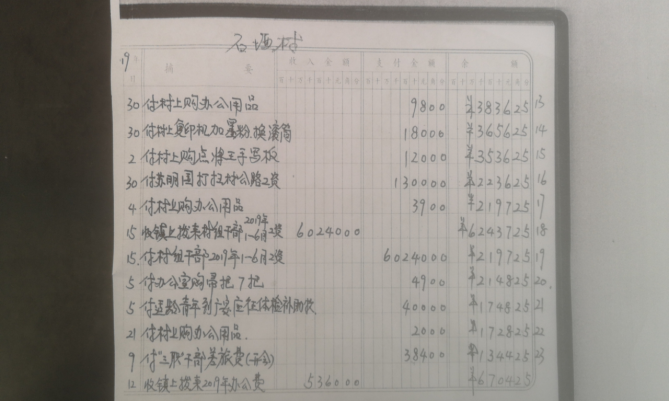 石
村
19年
摘 要 收入金额 支付金额 余 额
30 付村上购办公用品 9800 ¥383625 13
30 付村上复印机加墨粉换滚筒 18000 ¥365625 14
2 付村上购点将王手写板 12000 ¥353625 15
30 付苏明国打扫村公路工资 130000 ¥223625 16
4 付村上购办公用品 3900 ¥219725 17
15 收镇上拨来村组干部2019年1-6月工资 6024000 ¥6243725 18
15. 付村组干部2019年1-6月工资 6024000 ¥219725 19
5 付办公室购吊扇7把 4900 ¥214825 20
5 付适龄青年到 体检补助 40000 ¥174825 21
21 付村上购办公用品. 2000 ¥172825 22
9 付"三职"干部差旅费 38400 ¥134425 23
12 收镇上拨来2019年办公费 536000 ¥670425